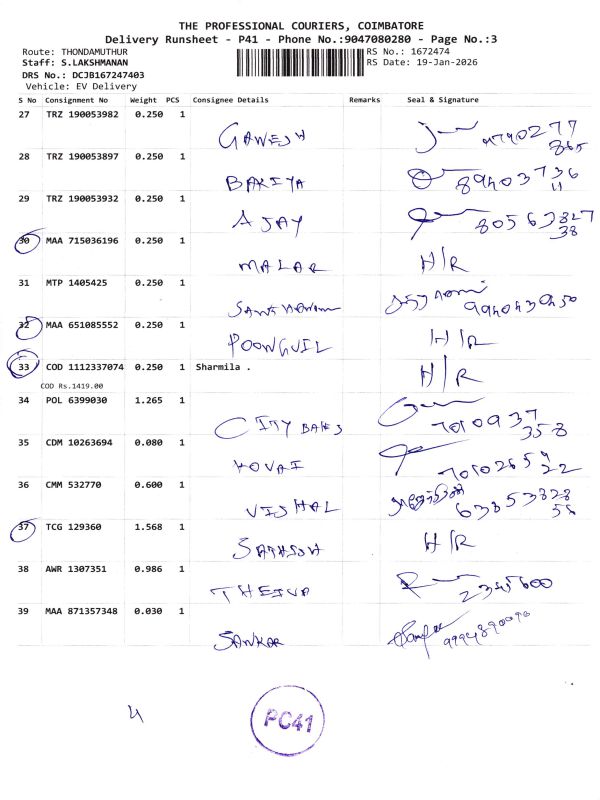 THE PROFESSIONAL COURIERS, COIMBATORE
Delivery Runsheet - P41 - Phone No.:9047080280 - Page No.:3
Route: THONDAMUTHUR
RS No.: 1672474
Staff: S.LAKSHMANAN
RS Date: 19-Jan-2026
DRS No.: DCJB167247403
Vehicle: EV Delivery
S No Consignment No Weight PCS Consignee Details Remarks Seal & Signature
27 TRZ 190053982 0.250 1
GANESH
28 TRZ 190053897 0.250 1
BAKIYA 89403736
11
29 TRZ 190053932 0.250 1
AJAY 80563827
38
30 MAA 715036196 0.250 1
MALAR H/R
31 MTP 1405425 0.250 1
32 MAA 651085552 0.250 1
POONGUIL H/R
33 COD 1112337074 0.250 1 Sharmila .
H/R
COD Rs.1419.00
34 POL 6399030 1.265 1
CITY BAKES 7010937
358
35 CDM 10263694 0.080 1
KOVAI 70102659
22
36 CMM 532770 0.600 1
VISHAL 63853828
56
37 TCG 129360 1.568 1
H/R
38 AWR 1307351 0.986 1
THEIVA 2345600
39 MAA 871357348 0.030 1
SANKAR
4
PC41